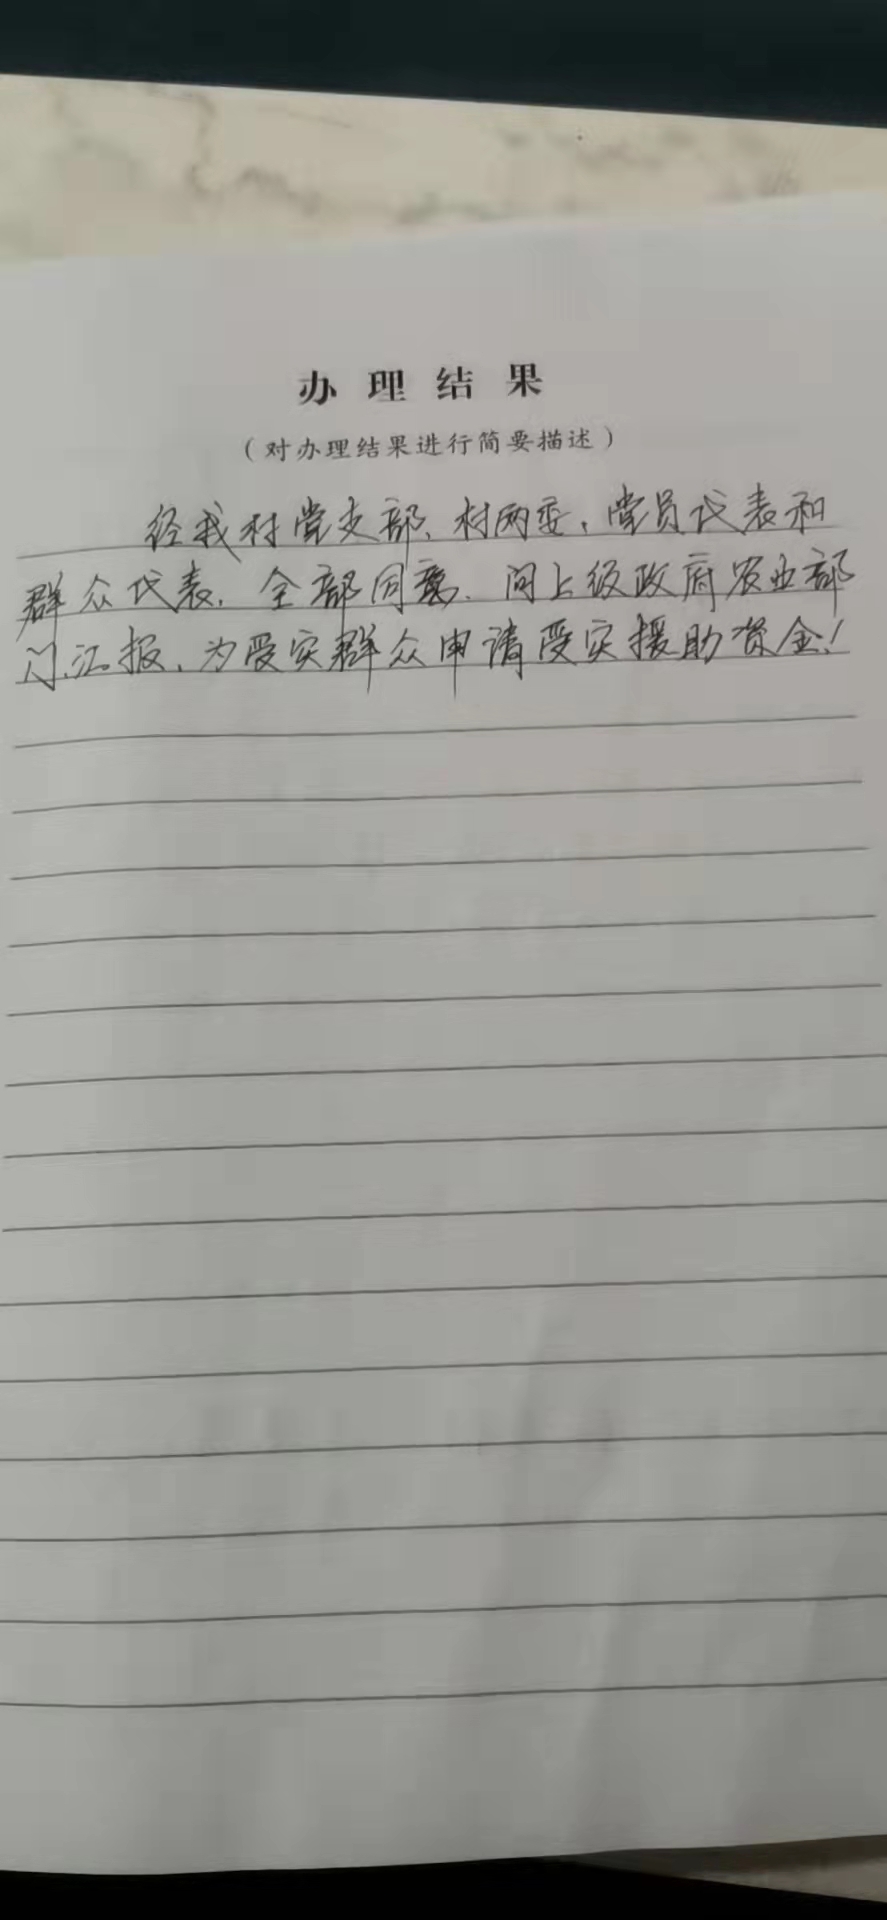 办理结果
（对办理结果进行简要描述）
经我村党支部、村两委、党员代表和
群众代表，全部同意，向上级政府农业部
门汇报，为受灾群众申请受灾援助资金！